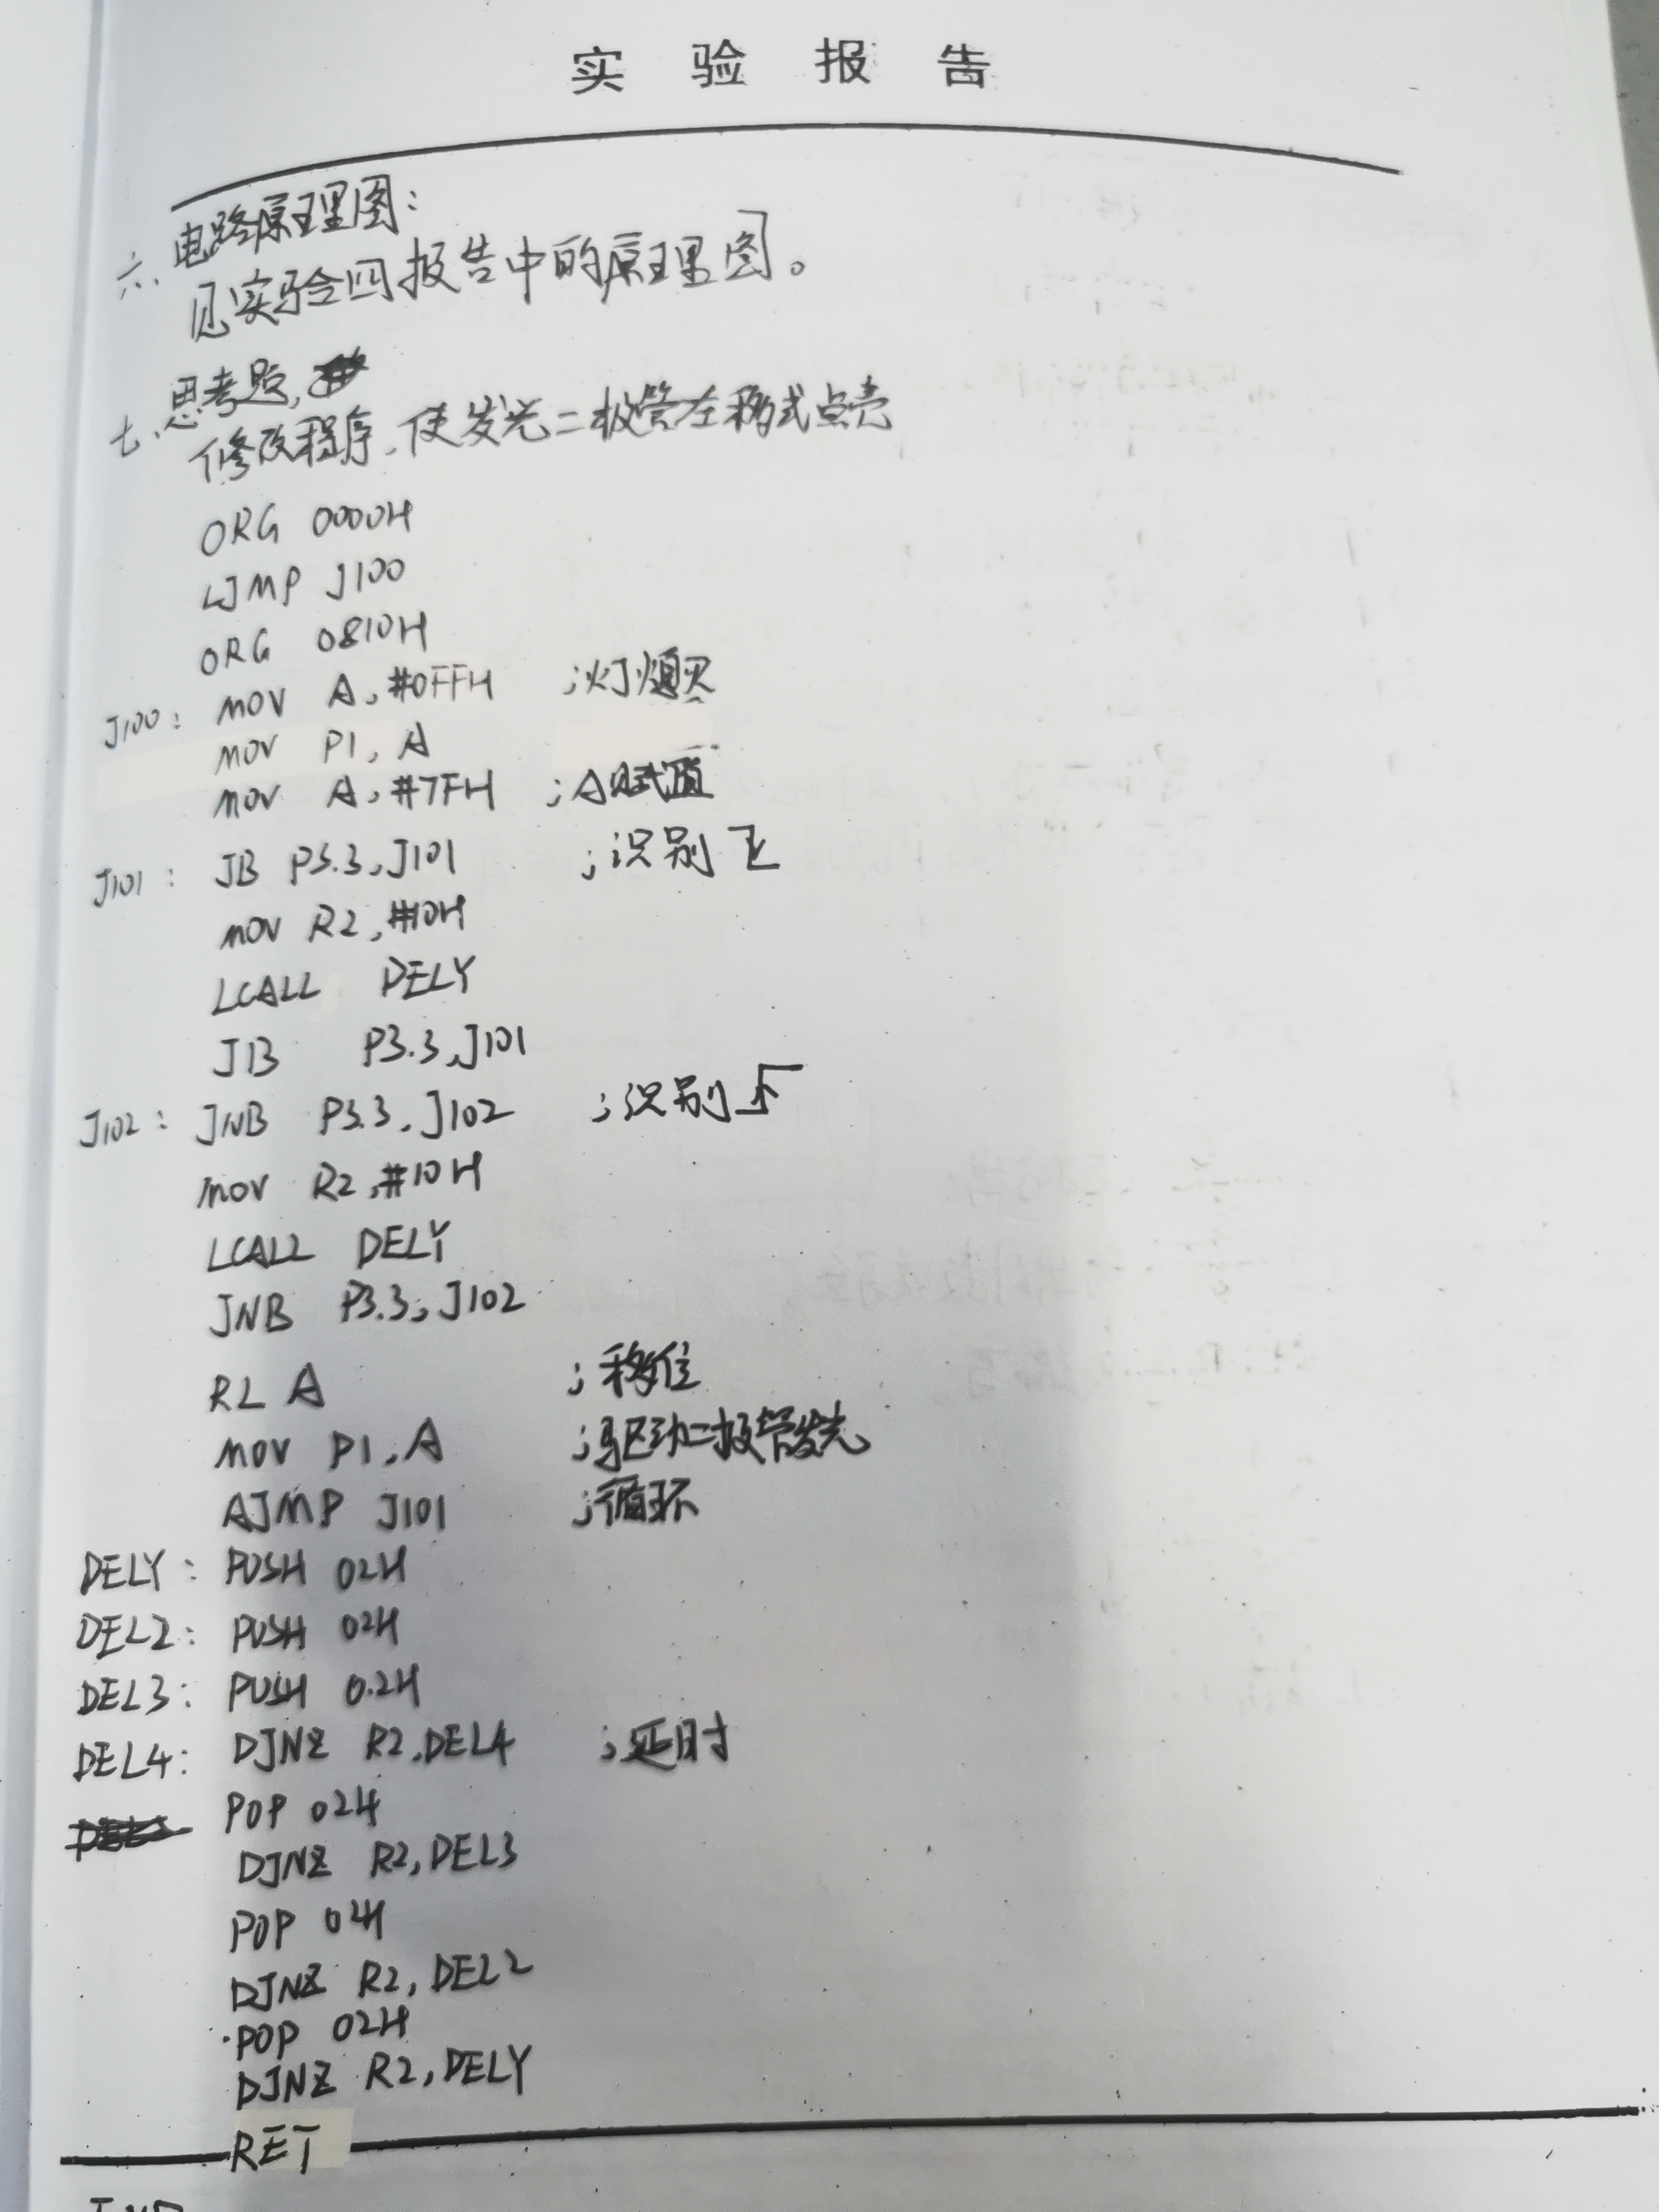 实 验 报 告
六、电路原理图:
见实验四报告中的原理图。
七、思考题,
修改程序,使发光二极管左移式点亮
ORG 0000H
LJMP J100
ORG 0810H
J100: MOV A,#0FFH ;灯熄灭
MOV P1,A
MOV A,#7FH ;A赋值
J101: JB P3.3,J101 ;识别
MOV R2,#10H
LCALL DELY
JB P3.3,J101
J102: JNB P3.3,J102 ;识别
MOV R2,#10H
LCALL DELY
JNB P3.3,J102
RL A ;移位
MOV P1,A ;驱动二极管发光
AJMP J101 ;循环
DELY: PUSH 02H
DEL2: PUSH 02H
DEL3: PUSH 0.2H
DEL4: DJNZ R2,DEL4 ;延时
POP 02H
DJNZ R2,DEL3
POP 02H
DJNZ R2,DEL2
POP 02H
DJNZ R2,DELY
RET